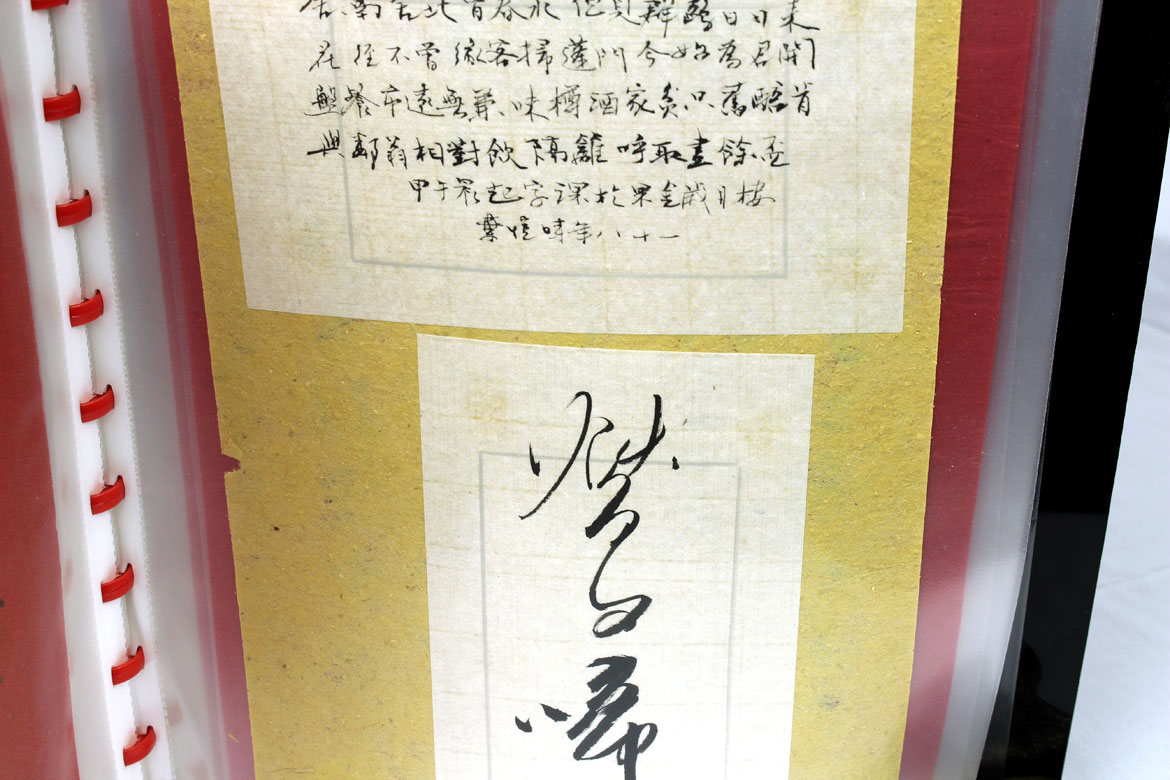 舍南舍北皆春水但見群鷗日日來
花徑不曾緣客掃蓬門今始為君開
盤飧市遠無兼味樽酒家貧只舊醅肯
與鄰翁相對飲隔籬呼取盡餘盃
甲午晨起字課於果盦歲月樓
時年八十一